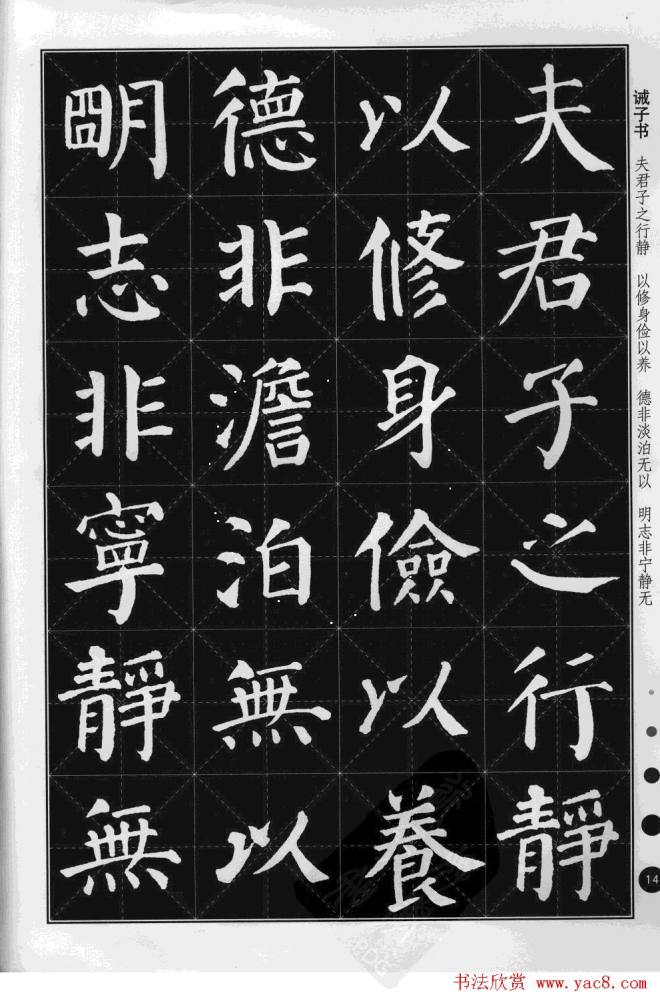 诫子书 夫君子之行静 以修身俭以养 德非淡泊无以 明志非宁静无
夫君子之行靜
以修身儉以養
德非澹泊無以
明志非寧靜無
14
书法欣赏 www.yac8.com